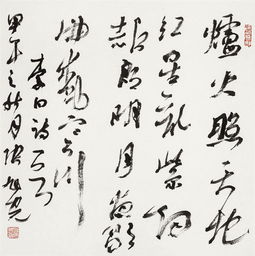 爐火照天地
紅星亂紫烟
赧郎明月夜歌
曲動寒川
李白詩
甲午之秋月